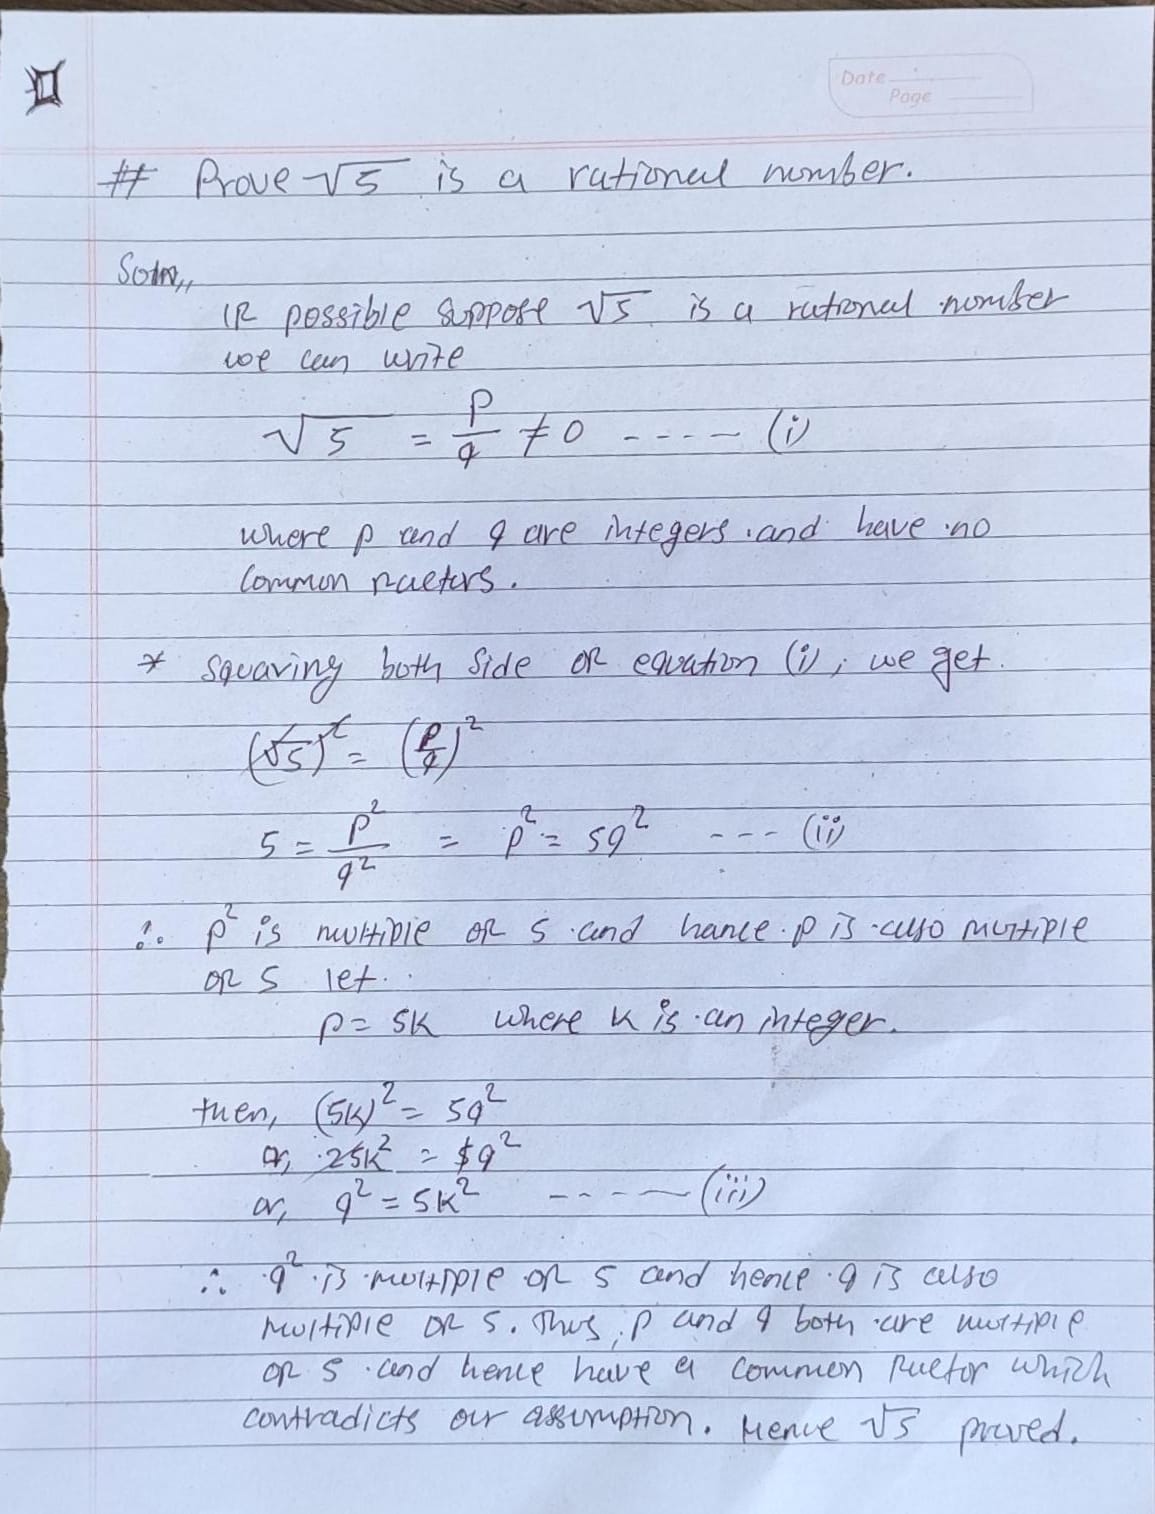 Date
Page
# Prove √5 is a rational number.
Soln,,
If possible suppose √5 is a rational number
we can write
√5 = p/q ≠ 0 ----- (i)
where p and q are integers and have no
common factors.
* Squaring both side of equation (i), we get.
(√5)² = (p/q)²
5 = p²/q² = p² = 5q² --- (ii)
∴ p² is multiple of 5 and hance p is also multiple
of 5 let.
p = 5k where k is an integer.
then, (5k)² = 5q²
or, 25k² = 5q²
or, q² = 5k² ----- (iii)
∴ q² is multiple of 5 and hence q is also
multiple of 5. Thus, p and q both are multiple
of 5 and hence have a common factor which
contradicts our assumption. Hence √5 proved.